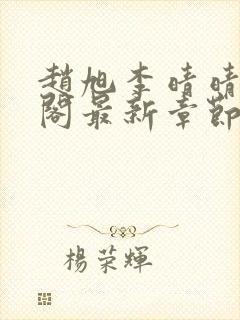 趙旭李晴晴
閣最新章節
楊榮輝